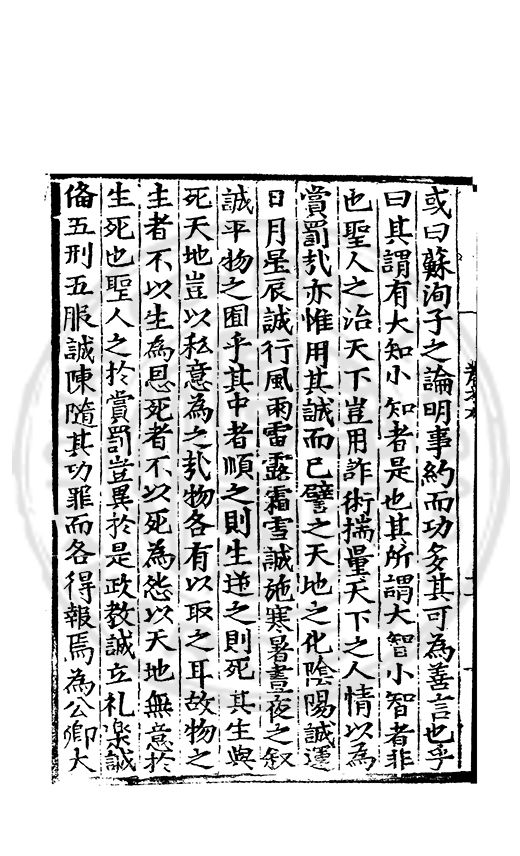 或曰蘇洵子之論明事約而功多其可為善言也乎
曰其謂有大知小知者是也其所謂大智小智者非
也聖人之治天下豈用詐術揣量天下之人情以為
賞罰㢤亦惟用其誠而已譬之天地之化陰陽誠運
日月星辰誠行風雨雷露霜雪誠施寒暑晝夜之叙
誠平物之囿乎其中者順之則生逆之則死其生與
死天地豈以私意為之㢤物各有以取之耳故物之
生者不以生為恩死者不以死為怨以天地無意於
生死也聖人之於賞罰豈異於是政教誠立礼楽誠
俻五刑五服誠陳隨其功罪而各得報焉為公卿大